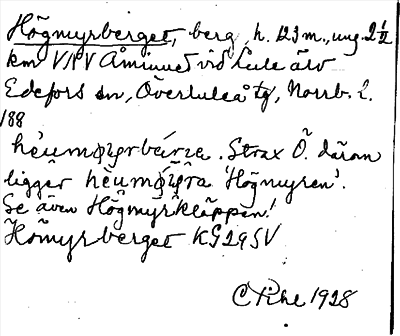 Högmyrberget, berg, h. 123 m., ung. 2 1/2
km VNV Åminnet vid Lule älv
Edefors sn, Överluleå tg, Norrb. l.
188
Strax Ö. därom
ligger 'Högmyren'.
Se även Högmyrkläppen!
Hömyrberget KG29SV
1928